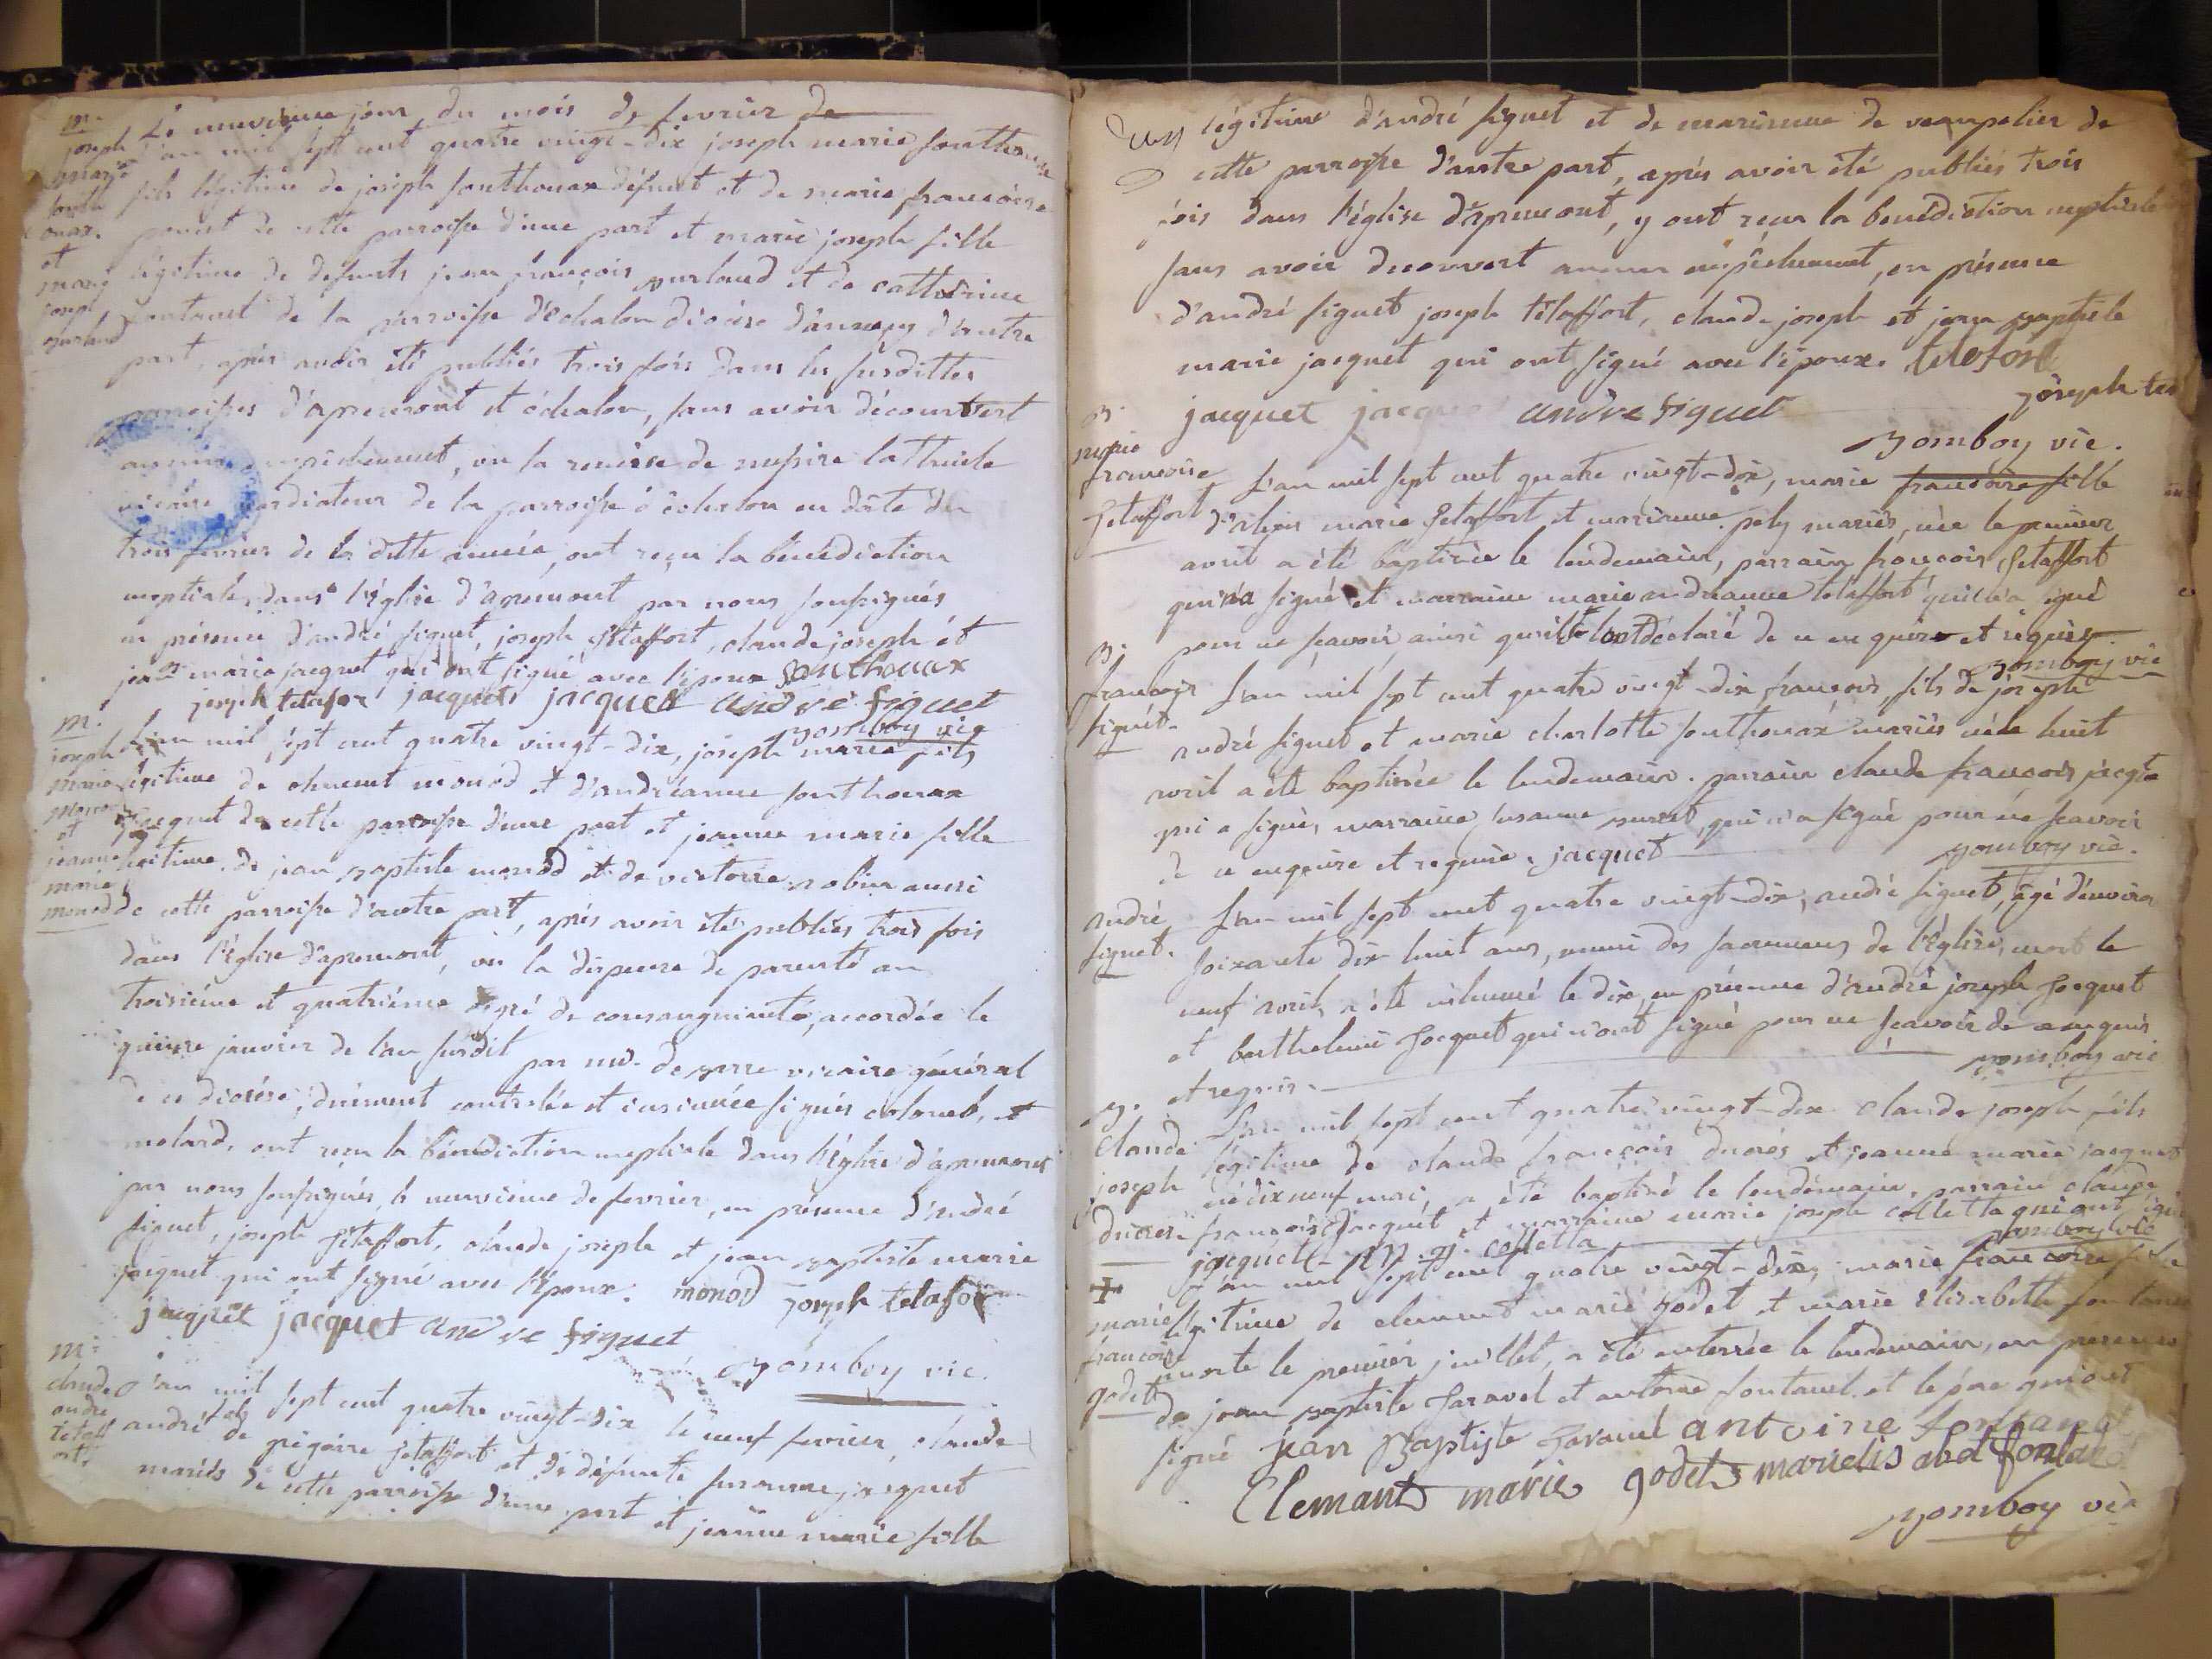 m.
joseph
marie
south
onax.
et
marie
joseph
gurland
Le neuvieme jour du mois de fevrier de
l'an mil sept cent quatre vingt-dix joseph marie southonax
fils légitime de joseph southonax défunt et de marie françoise
poncet de cette parroisse d'une part et marie joseph fille
légitime de defunts jean françois gurland et de catherine
de la parroisse d'échalon diocése d'annecy d'autre
part, aprés avoir été publiés trois fois dans les susdittes
parroisses d'apremont et échalon, sans avoir découvert
aucun empêchement, vu la remise de messire
vicaire de la parroisse d'échalon en datte du
trois fevrier de la ditte année, ont reçu la bénédiction
nuptiale, dans l'église d'apremont par nous soussignés
en présence d'andré figuet, joseph tétaffort, claude joseph et
jean marie jacquet qui ont signé avec l'époux Southonax
joseph tetafor jacquet jacquet andré figuet
gomboy vic
m.
joseph
marie
monod
et
jeanne
marie
monod
L'an mil sept cent quatre vingt-dix, joseph marie fils
légitime de clement monod et d'andréanne southonax
jacquet de cette parroisse d'une part et jeanne marie fille
légitime de jean baptiste monod et de victoire robin aussi
de cette parroisse d'autre part, aprés avoir été publiés trois fois
dans l'église d'apremont, vu la dispense de parenté au
troisiéme et quatriéme degré de consanguinité, accordée le
quinze janvier de l'an susdit par mr. de serre vicaire général
de ce diocése, duement controlée et insinuée signés colomb, et
molard, ont reçu la bénédiction nuptiale dans l'église d'apremont
par nous soussignés, le neuvieme de fevrier, en présence d'andré
figuet, joseph tétaffort, claude joseph et jean baptiste marie
jacquet qui ont signé avec l'époux. monod joseph tetafor
jacquet jacquet andre figuet
gomboy vic.
m.
claude
andré
tétaff
ort.
L'an mil sept cent quatre vingt-dix le neuf fevrier, claude
andré fils de grégoire tétaffort et de défunte susanne jacquet
mariés de cette parroisse d'une part et jeanne marie fille
légitime d'andré figuet et de marianne de veanpelier de
cette parroisse d'autre part, aprés avoir été publiés trois
fois dans l'église d'apremont, y ont reçu la benédiction nuptiale
sans avoir decouvert aucun empêchement, en présence
d'andré figuet joseph tétaffort, claude joseph et jean baptiste
marie jacquet qui ont signé avec l'époux. tetofort
jacquet jacquet andre figuet joseph tet
gomboy vic.
B.
marie
francoise
tetaffort
L'an mil sept cent quatre vingt-dix, marie francoise fille
d'alexis marie tetaffort et marianne pely mariés, née le premier
avril a été baptisée le lendemain, parrain françois tetaffort
qui n'a signé et marraine marie andréanne tétaffort qui n'a signé
pour ne sçavoir, ainsi qu'ils l'ont déclaré de ce enquis et requis.
gomboy vic
B.
françois
figuet.
L'an mil sept cent quatre vingt-dix françois, fils de joseph
andré figuet et marie charlotte southonax mariés né le huit
avril a été baptisée le lendemain. parrain claude françois jacquet
qui a signé, marraine susanne, qui n'a signé pour ne sçavoir
de ce enquise et requise. jacquet
gomboy vic.
andré
figuet.
L'an mil sept cent quatre vingt-dix, andré figuet, âgé d'environ
soixante dix huit ans, muni des sacremens de l'église, mort le
neuf avril, a été inhumé le dix, en présence d'andré joseph jocquet
et barthelemi jocquet qui n'ont signé pour ne sçavoir de ce enquis
et requis.
gomboy vic
B.
claude
joseph
ducret
L'an mil sept cent quatre vingt-dix claude joseph fils
légitime de claude françois ducrés et jeanne marie jacquet
né dixneuf mai, a été baptisé le lendemain, parrain claude
françois jacquet et marraine marie joseph colletta qui ont signé
jacquet m. j. colletta
gomboy vic
+
marie
françoise
godet
L'an mil sept cent quatre vingt-dix, marie françoise fille
légitime de clement marie godet et marie elisabeth fontanel
morte le premier juillet, a été enterrée le lendemain, en présence
de jean baptiste jaravel et antoine fontanel et le pére qui ont
signé jean Baptiste antoine fontanel
Clemant marie godet marielis abet fontanel
gomboy vic